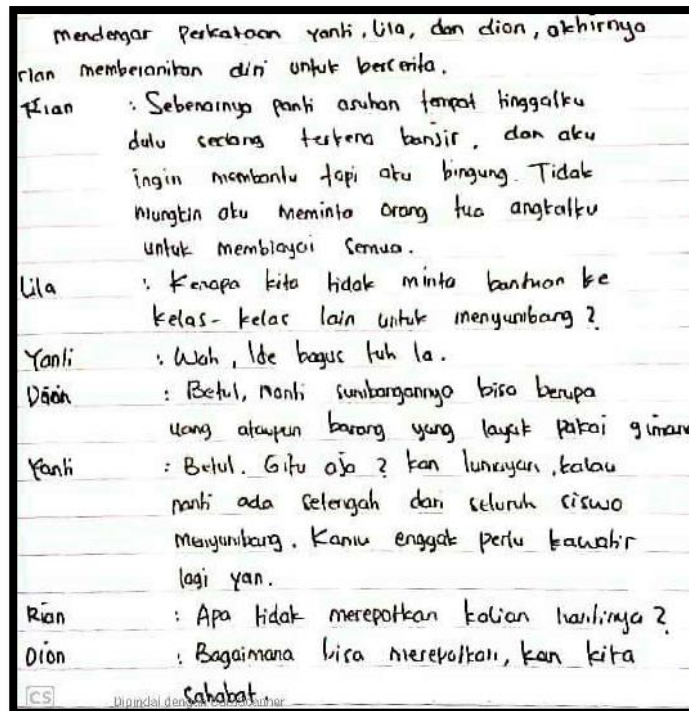 mendengar perkataan Yanti, Lila, dan dion, akhirnya
rian memberanikan diri untuk bercerita.
Rian : Sebenarnya panti asuhan tempat tinggalku
dulu sedang terkena banjir, dan aku
ingin membantu tapi aku bingung. Tidak
mungkin aku meminta orang tua angkatku
untuk membiayai semua.
Lila : Kenapa kita tidak minta bantuan ke
kelas-kelas lain untuk menyumbang?
Yanti : Wah, Ide bagus tuh la.
Dion : Betul, nanti sumbangannya bisa berupa
uang ataupun barang yang layak pakai giman
Yanti : Betul. Gitu aja? kan lumayan, kalau
nanti ada setengah dari seluruh siswa
menyumbang. Kamu enggak perlu kawatir
lagi yan.
Rian : Apa tidak merepotkan kalian nantinya?
Dion : Bagaimana bisa merepotkan, kan kita
sahabat.
CS Dipindai dengan CamScanner